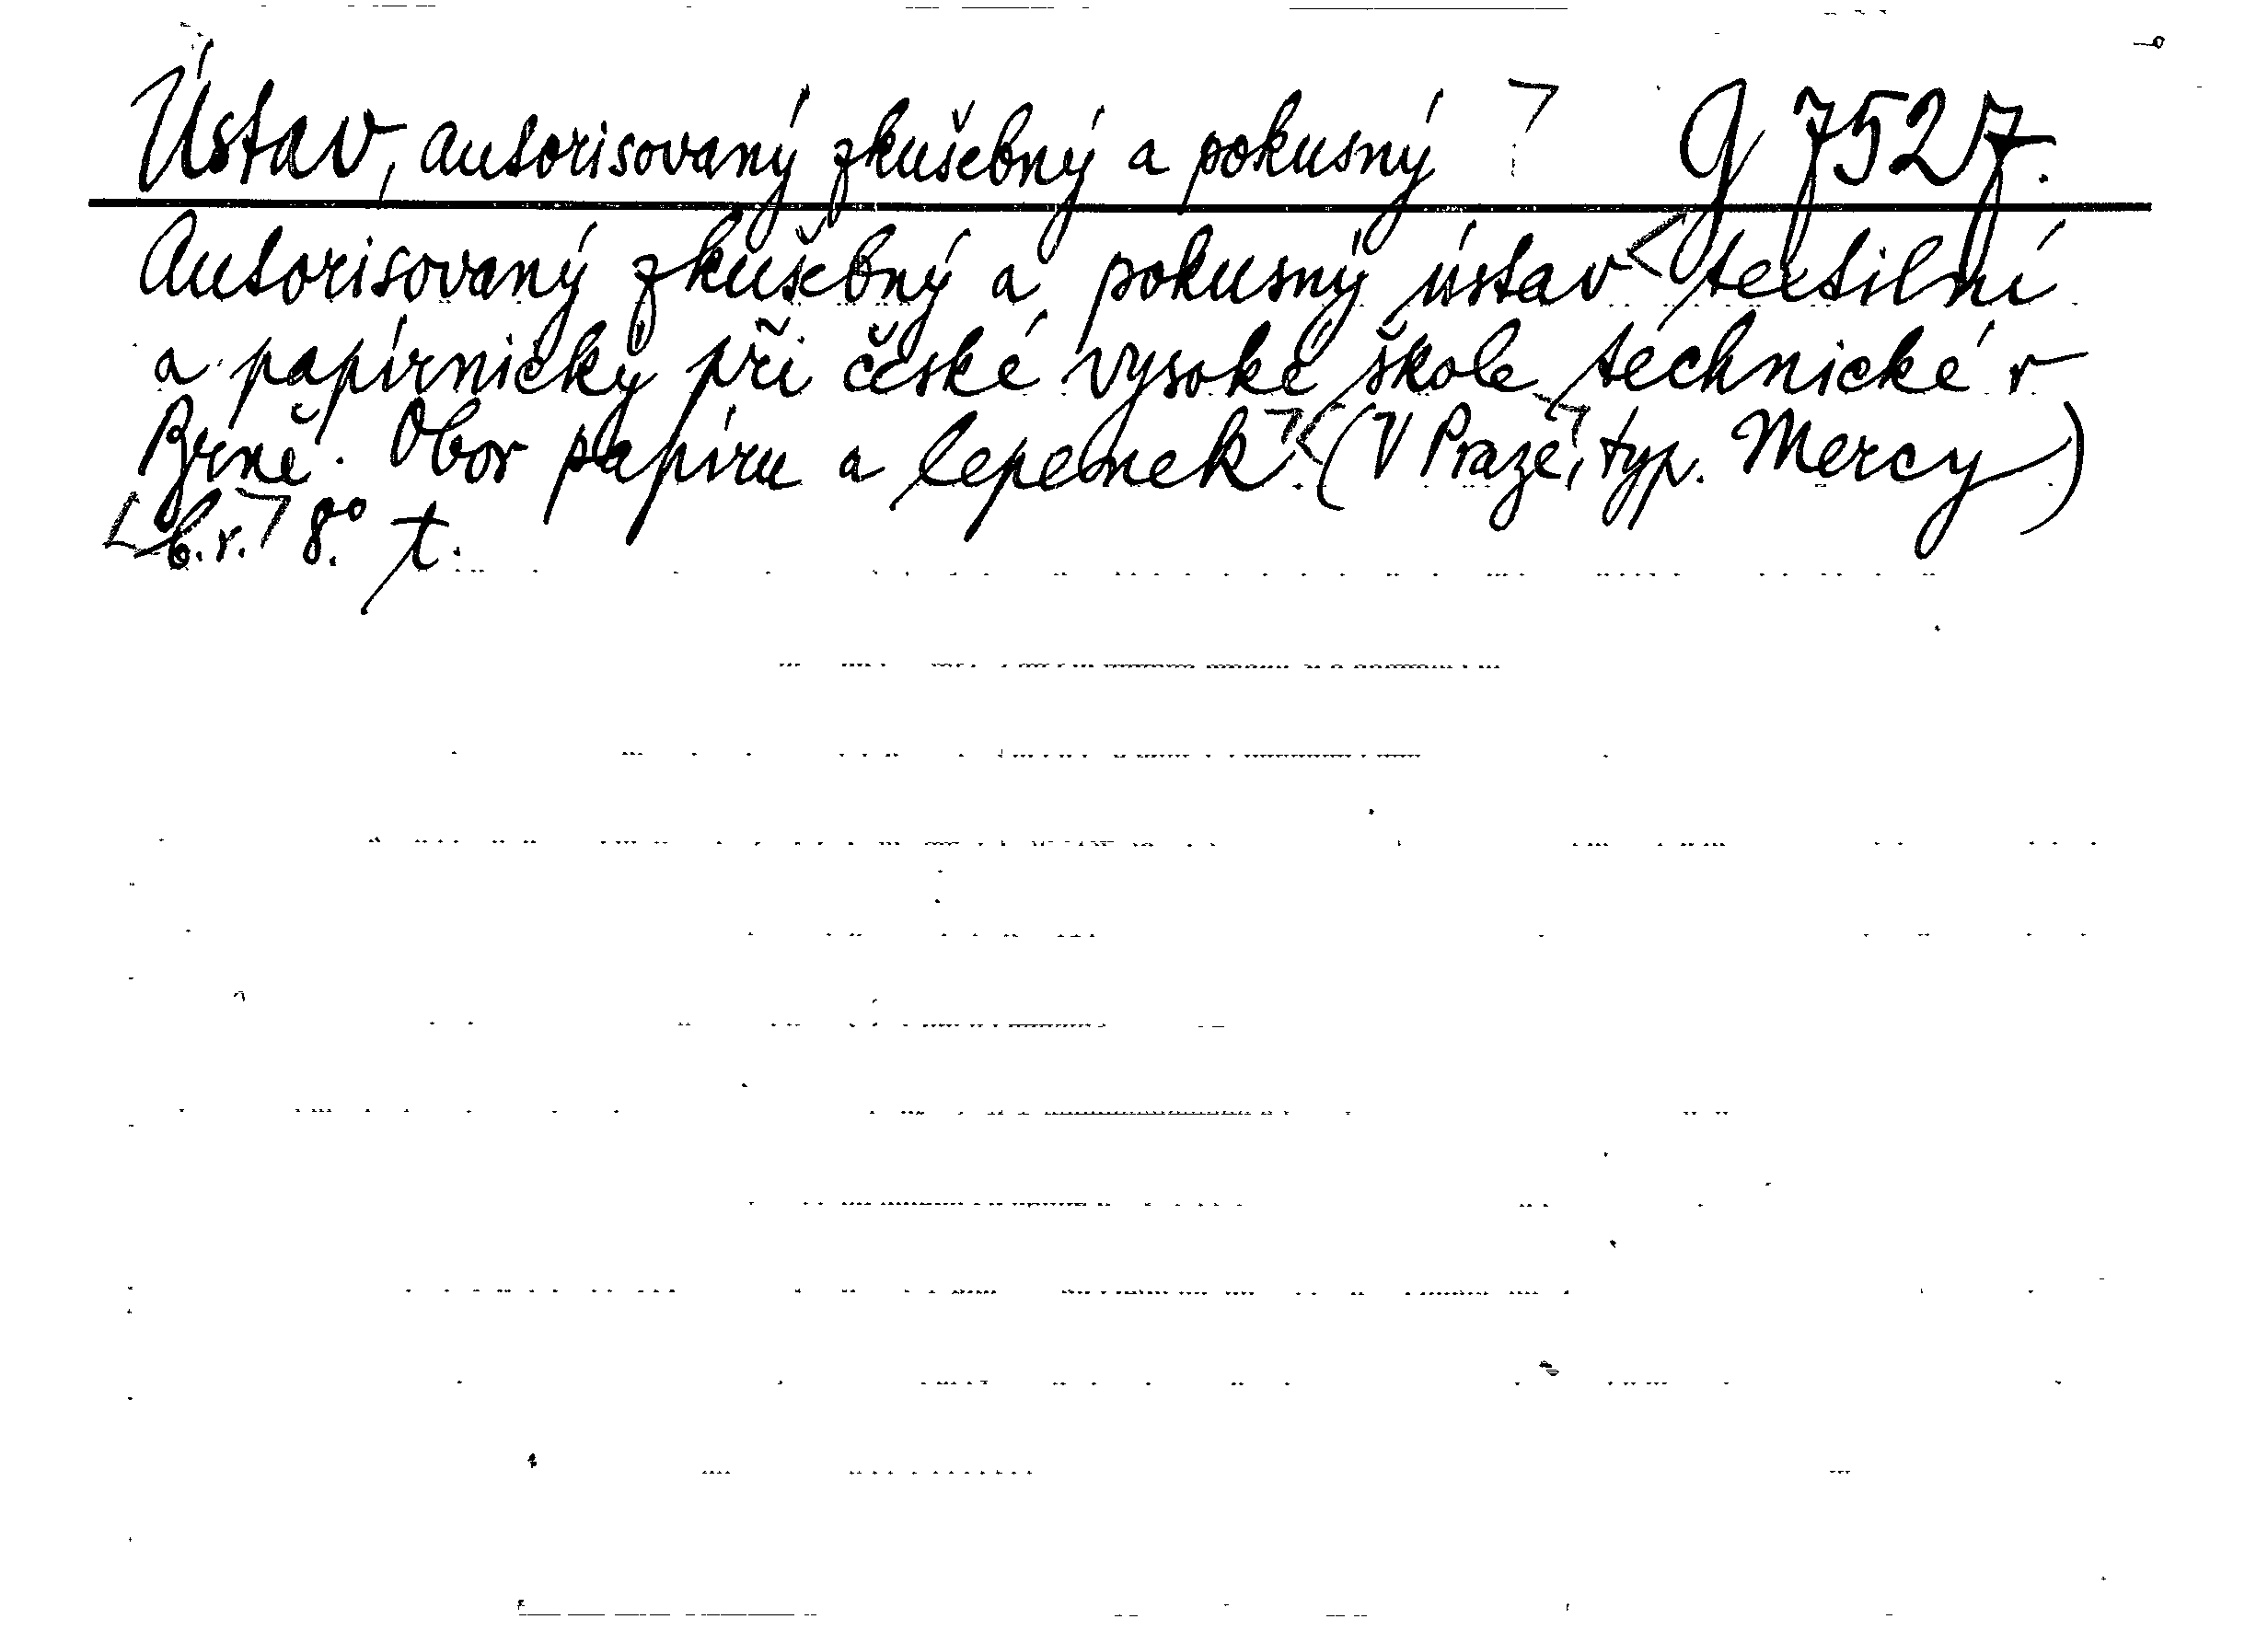 Ústav, autorisovaný zkušebný a pokusný G 7527.
Autorisovaný zkušebný a pokusný ústav textilní
a papírnický při české vysoké škole technické v
Brně. Obor papíru a lepenek (V Praze, typ. Mercy)
b.r. 8° t.